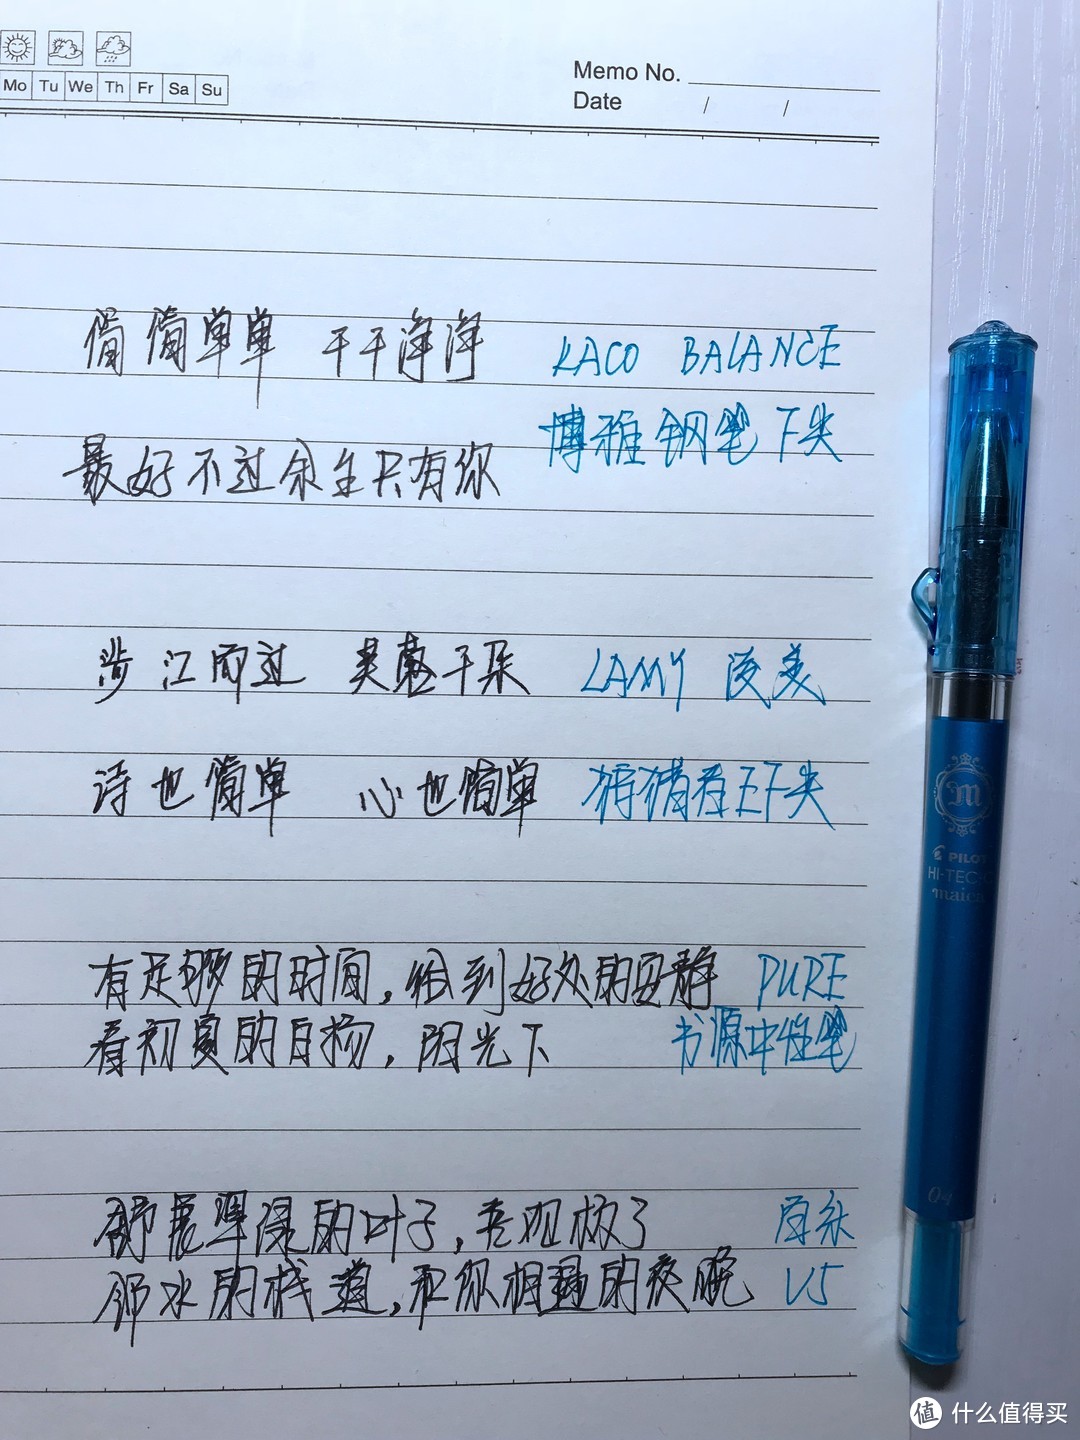 Mo Tu We Th Fr Sa Su
Memo No.
Date / /
简简单单 干干净净 KACO BALANCE
博雅钢笔 F尖
最好不过余生只有你
涉江而过 芙蓉千朵 LAMY 凌美
诗也简单 心也简单 狩猎者EF尖
有足够的时间,给到好处的安静 PURE
看初夏的自扬,阳光下 书源中性笔
舒展翠绿的叶子,
V5
邻水的栈道,和你相遇的夜晚
M
PILOT
HI-TEC-C
maica
04
值 什么值得买